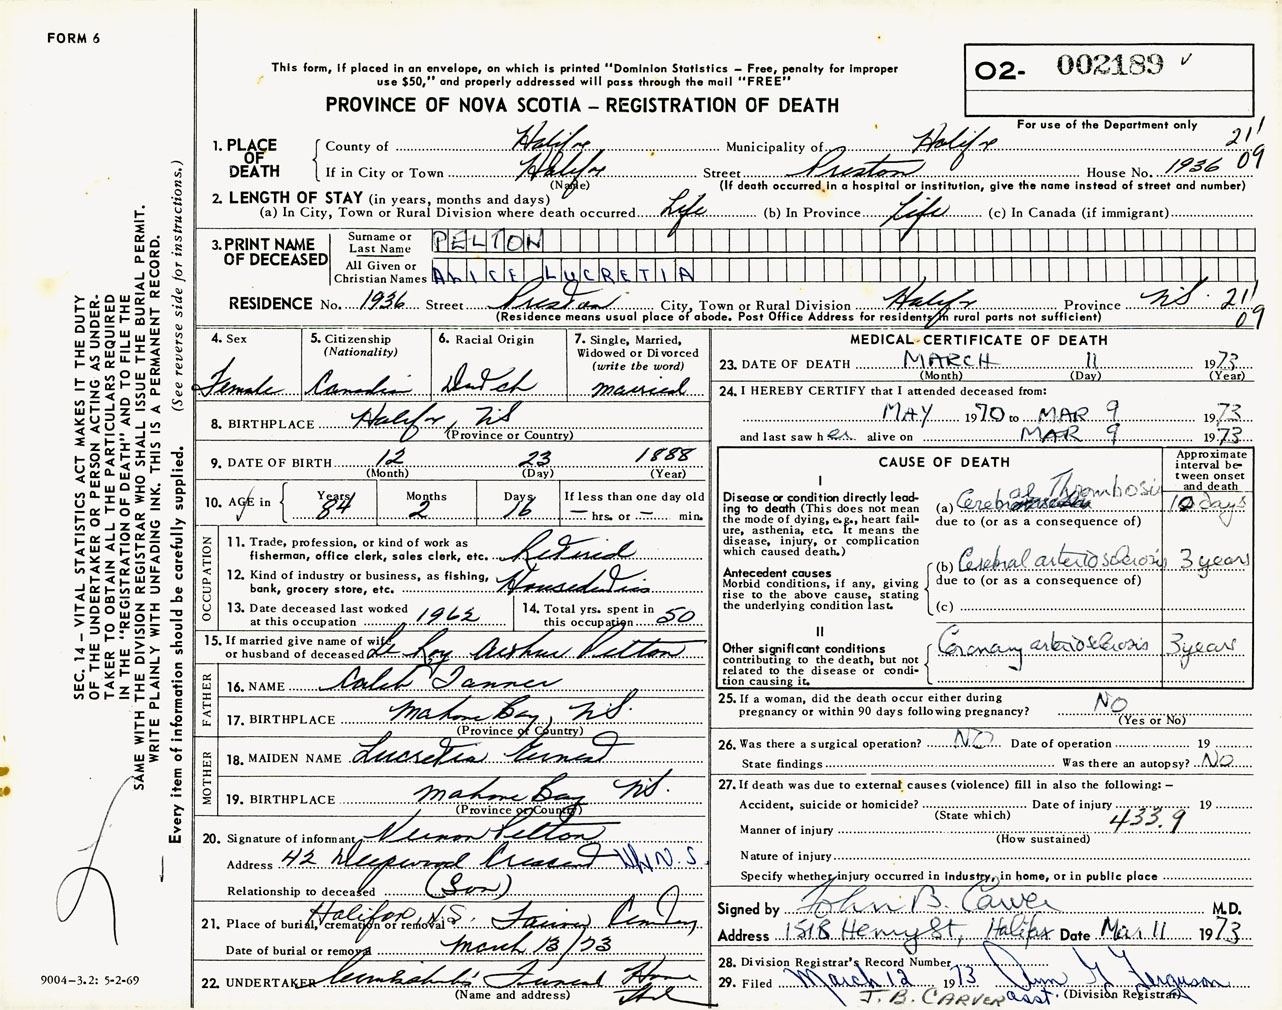 FORM 6
This form, if placed in an envelope, on which is printed "Dominion Statistics – Free, penalty for improper
use $50," and properly addressed will pass through the mail "FREE"
O2- 002189
For use of the Department only
PROVINCE OF NOVA SCOTIA – REGISTRATION OF DEATH
211
09
1. PLACE OF DEATH
County of Halifx Municipality of Halifx
If in City or Town Halifx Street Preston House No. 1936
(Name) (If death occurred in a hospital or institution, give the name instead of street and number)
2. LENGTH OF STAY (in years, months and days)
(a) In City, Town or Rural Division where death occurred Life (b) In Province Life (c) In Canada (if immigrant)
3. PRINT NAME OF DECEASED
Surname or Last Name PELTON
All Given or Christian Names ALICE LUCRETIA
RESIDENCE No. 1936 Street Preston City, Town or Rural Division Halifx Province NS. 211
09
(Residence means usual place of abode. Post Office Address for residents in rural parts not sufficient)
4. Sex Female
5. Citizenship (Nationality) Canadian
6. Racial Origin Dutch
7. Single, Married, Widowed or Divorced (write the word) married
8. BIRTHPLACE Halifx, NS
(Province or Country)
9. DATE OF BIRTH 12 23 1888
(Month) (Day) (Year)
10. AGE in Years 84 Months 2 Days 16 If less than one day old – hrs. or – min.
OCCUPATION
11. Trade, profession, or kind of work as fisherman, office clerk, sales clerk, etc. Retired
12. Kind of industry or business, as fishing, bank, grocery store, etc. Houseduties
13. Date deceased last worked at this occupation 1962
14. Total yrs. spent in this occupation 50
15. If married give name of wife or husband of deceased Le Roy Arthur Pelton
FATHER
16. NAME Caleb Tanner
17. BIRTHPLACE Mahone Bay, NS.
(Province or Country)
MOTHER
18. MAIDEN NAME Lucretia Ernest
19. BIRTHPLACE Mahone Bay NS.
(Province or Country)
20. Signature of informant Vernon Pelton
Address 42 Deepwood Crescent N.S.
Relationship to deceased (Son)
21. Place of burial, cremation or removal Halifax, N.S.
Date of burial or removal March 13/73
22. UNDERTAKER Funeral Home
(Name and address)
MEDICAL CERTIFICATE OF DEATH
23. DATE OF DEATH MARCH 11 1973
(Month) (Day) (Year)
24. I HEREBY CERTIFY that I attended deceased from:
MAY 1970 to MAR 9 1973
and last saw her alive on MAR 9 1973
CAUSE OF DEATH
Approximate interval between onset and death
I
Disease or condition directly leading to death (This does not mean the mode of dying, e.g., heart failure, asthenia, etc. It means the disease, injury, or complication which caused death.)
(a) Cerebral Thrombosis 10 days
due to (or as a consequence of)
Antecedent causes
Morbid conditions, if any, giving rise to the above cause, stating the underlying condition last.
(b) Cerebral arteriosclerosis 3 years
due to (or as a consequence of)
(c)
II
Other significant conditions
contributing to the death, but not related to the disease or condition causing it.
Coronary arteriosclerosis 3 years
25. If a woman, did the death occur either during pregnancy or within 90 days following pregnancy? NO
(Yes or No)
26. Was there a surgical operation? NO Date of operation 19
State findings Was there an autopsy? NO
27. If death was due to external causes (violence) fill in also the following: –
Accident, suicide or homicide? Date of injury 19
(State which) 433.9
Manner of injury
(How sustained)
Nature of injury
Specify whether injury occurred in industry, in home, or in public place
Signed by John B. Carver M.D.
Address 1518 Henry St, Halifax Date Mar 11 1973
28. Division Registrar's Record Number
29. Filed March 12 1973 Ann G Ferguson
J. B. CARVER asst. (Division Registrar)
SEC. 14 – VITAL STATISTICS ACT MAKES IT THE DUTY
OF THE UNDERTAKER OR PERSON ACTING AS UNDER-
TAKER TO OBTAIN ALL THE PARTICULARS REQUIRED
IN THE "REGISTRATION OF DEATH" AND TO FILE THE
SAME WITH THE DIVISION REGISTRAR WHO SHALL ISSUE THE BURIAL PERMIT.
WRITE PLAINLY WITH UNFADING INK. THIS IS A PERMANENT RECORD.
Every item of information should be carefully supplied. (See reverse side for instructions.)
9004-3.2: 5-2-69